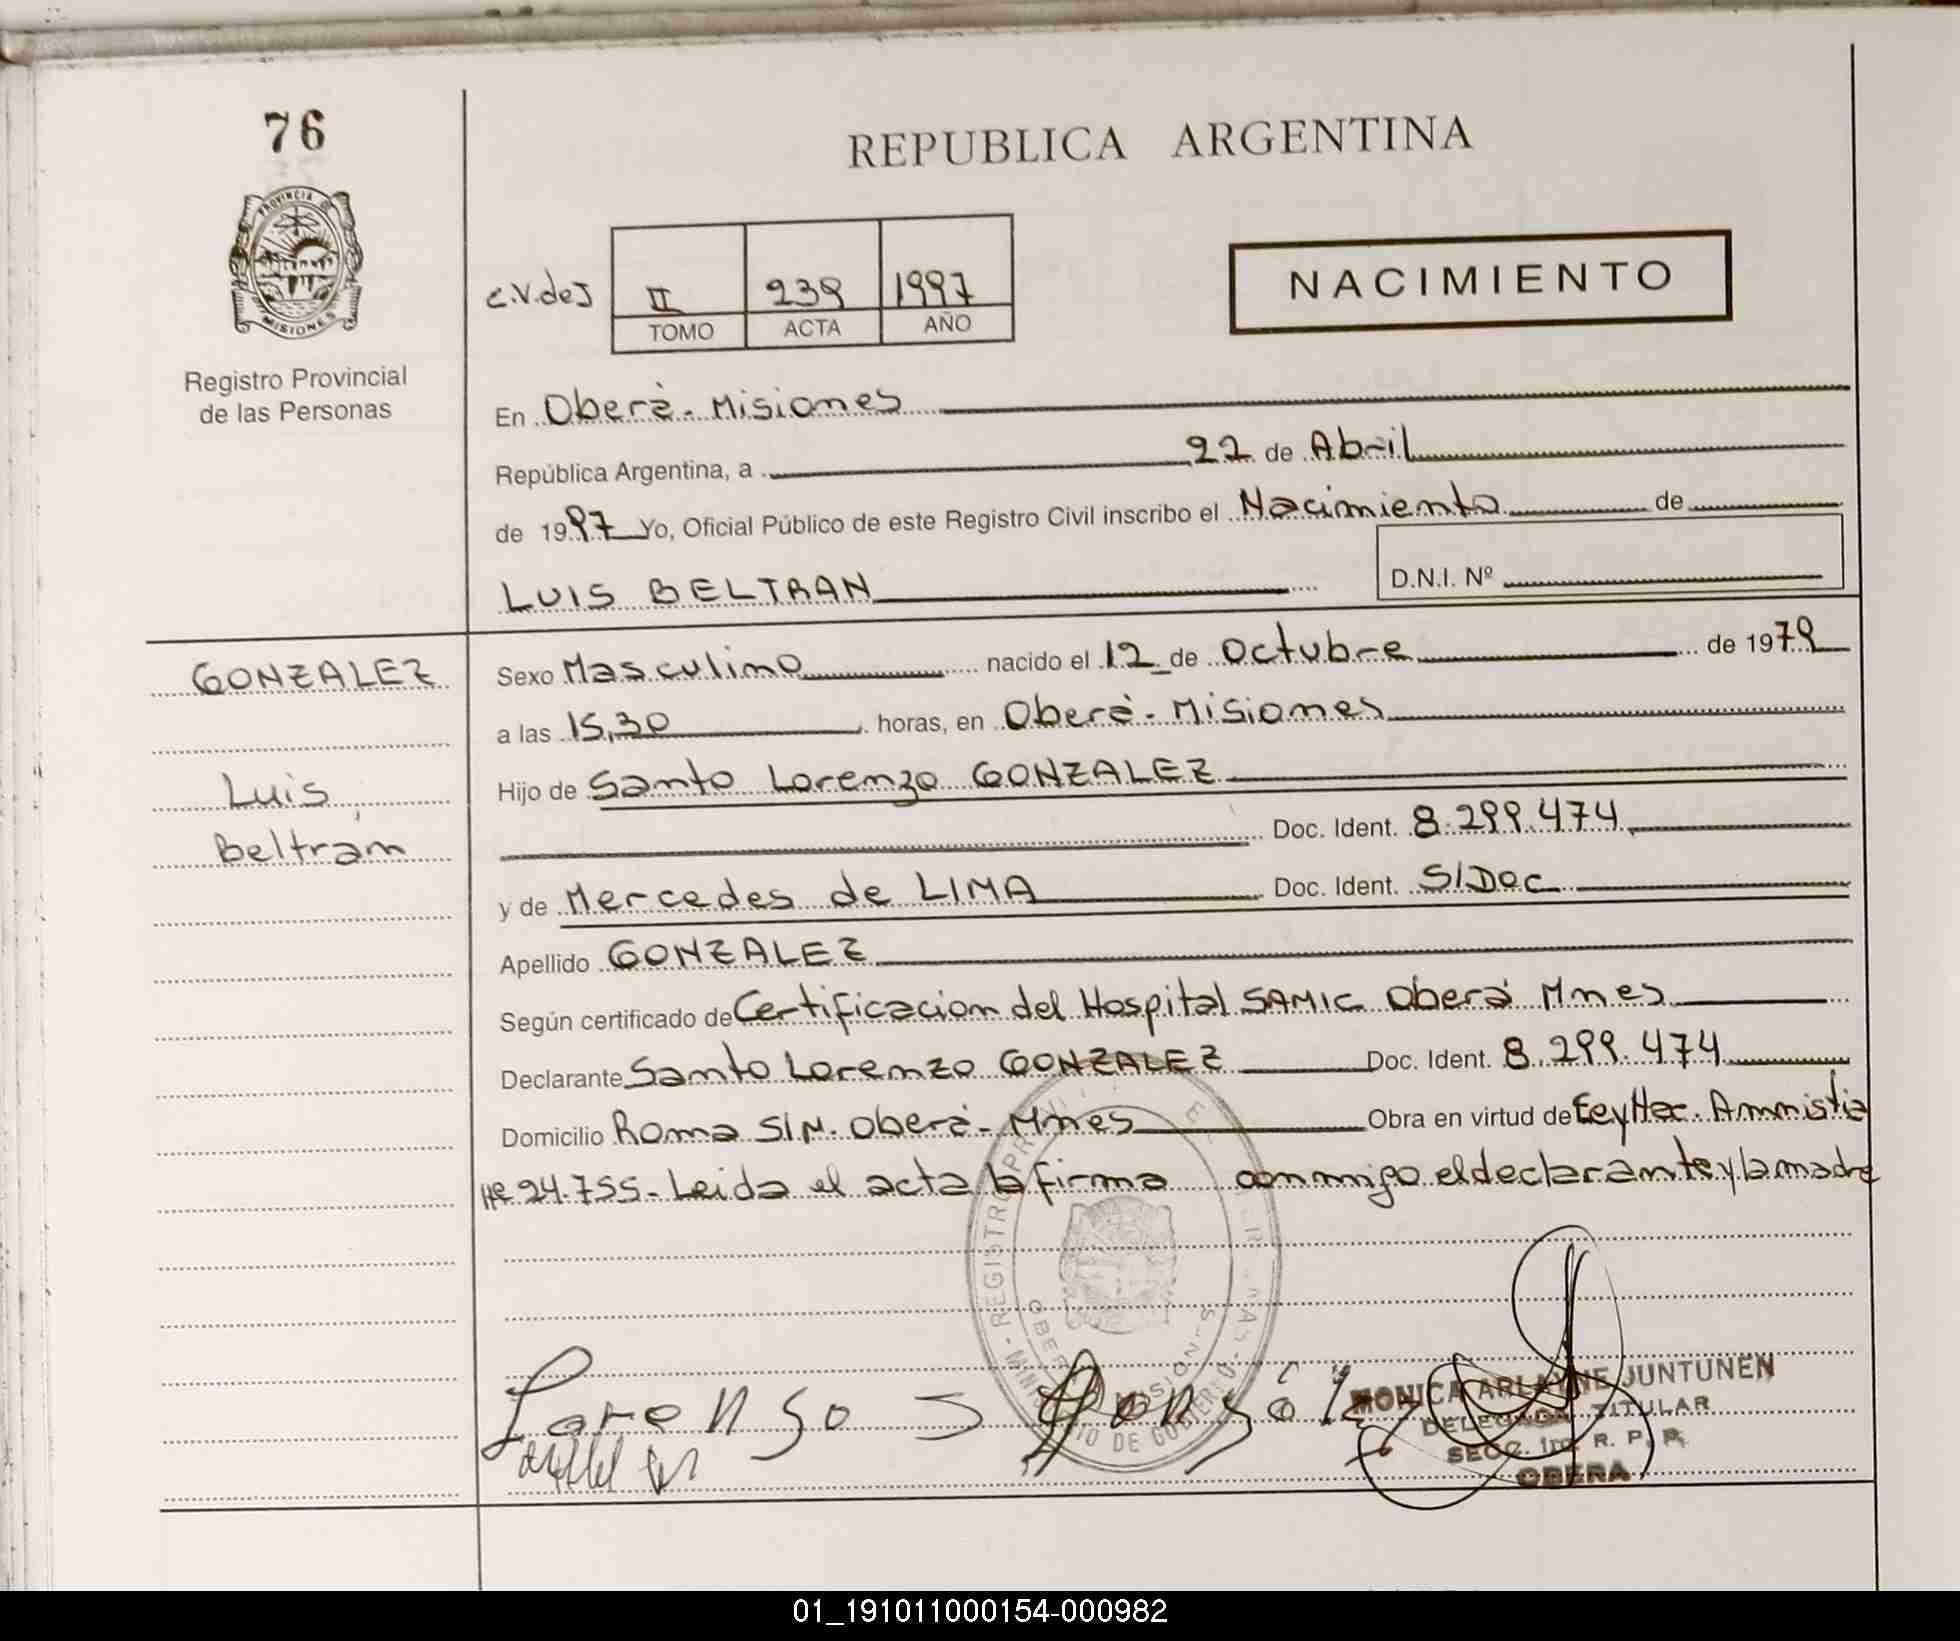 76
REPUBLICA ARGENTINA
PROVINCIA DE MISIONES
Registro Provincial
de las Personas
C.V.deJ
II 239 1997
TOMO ACTA AÑO
NACIMIENTO
En Oberà - Misiones
República Argentina, a 22 de Abril
de 1997 Yo, Oficial Público de este Registro Civil inscribo el Nacimiento de
LUIS BELTRAN D.N.I. Nº
GONZALEZ
Luis
Beltrán
Sexo Masculino nacido el 12 de Octubre de 1979
a las 15,30 horas, en Oberà - Misiones
Hijo de Santo Lorenzo GONZALEZ
Doc. Ident. 8.299.474
y de Mercedes de LIMA Doc. Ident. S/Doc
Apellido GONZALEZ
Según certificado de Certificacion del Hospital SAMIC Oberà Mnes
Declarante Santo Lorenzo GONZALEZ Doc. Ident. 8.299.474
Domicilio Roma S/N. Oberà - Mnes Obra en virtud de Ley Nac. Amnistia
Nº 24.755 - Leida el acta la firma conmigo el declarante y la madre
Lorenso S Gonsález
MONICA ARLAYNE JUNTUNEN
DELEGADA TITULAR
SECC. 1ra. R. P. P.
OBERA
01_191011000154-000982